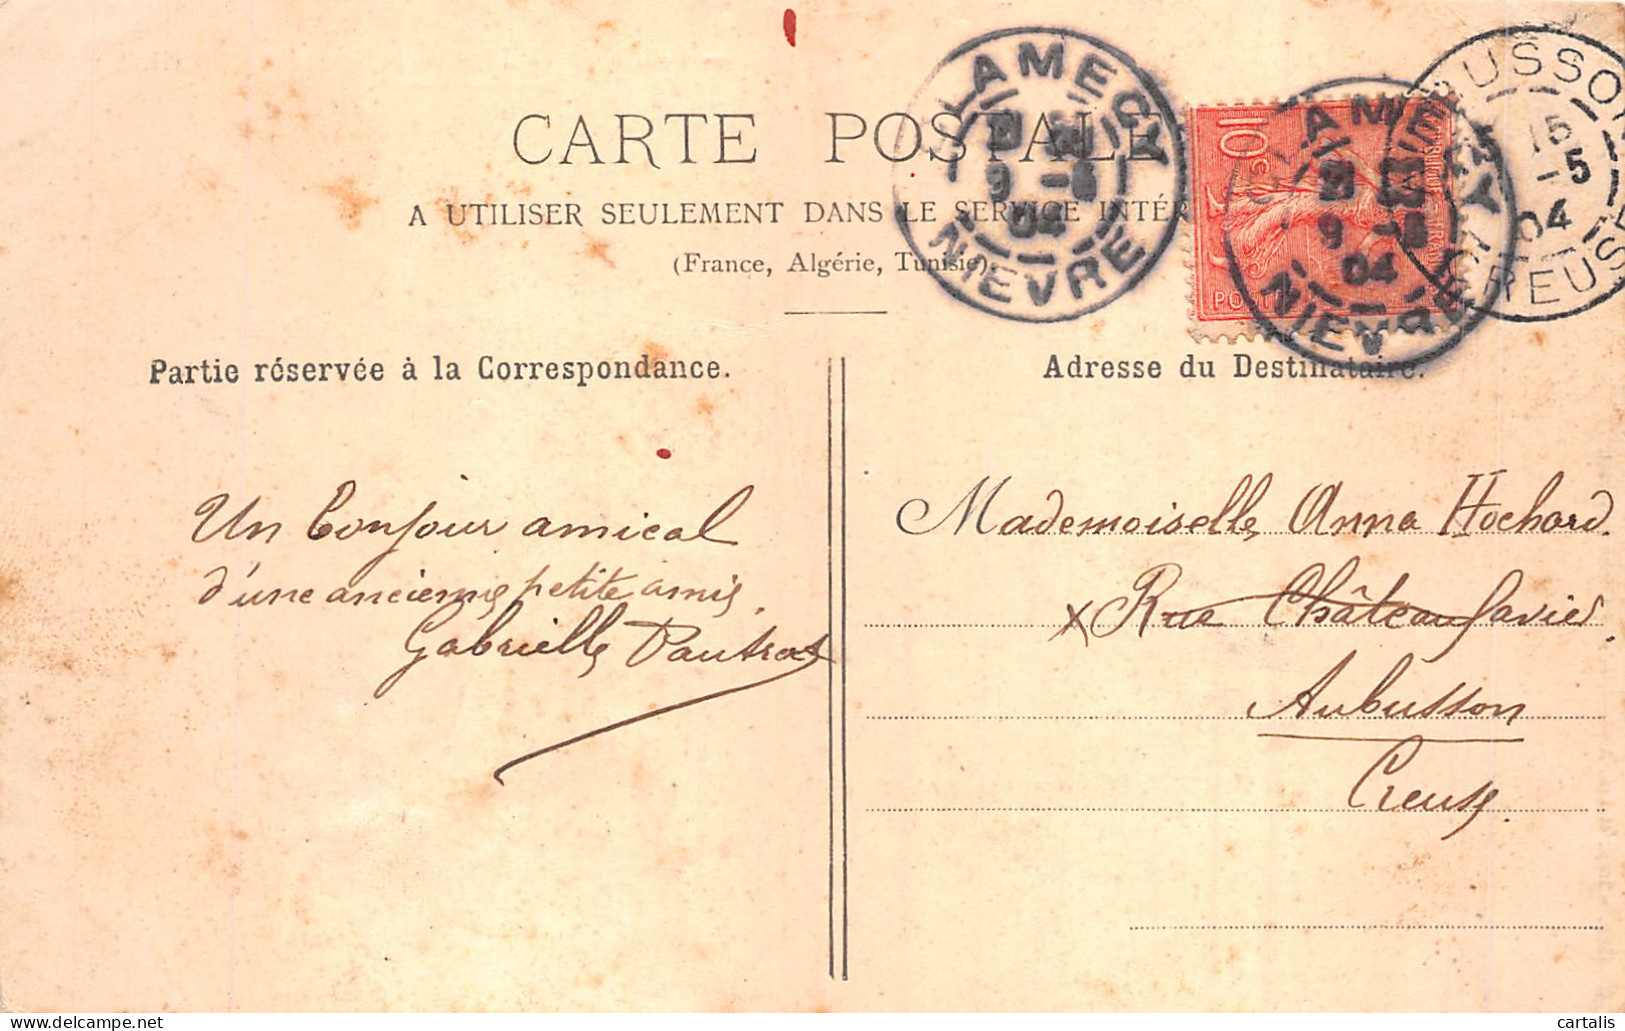 CARTE POSTALE
A UTILISER SEULEMENT DANS LE SERVICE INTÉR
(France, Algérie, Tunisie)
CLAMECY
9 -5
04
NIEVRE
10
c
POST
CLAMECY
9 -5
04
NIEVRE
AUBUSSON
15
-5
04
CREUSE
Partie réservée à la Correspondance.
Adresse du Destinataire.
Un bonjour amical
d'une ancienne petite amie.
Gabrielle Pautrat
Mademoiselle Anna Hochard.
x Rue Châteaufavier.
Aubusson
Creuse
cartalis